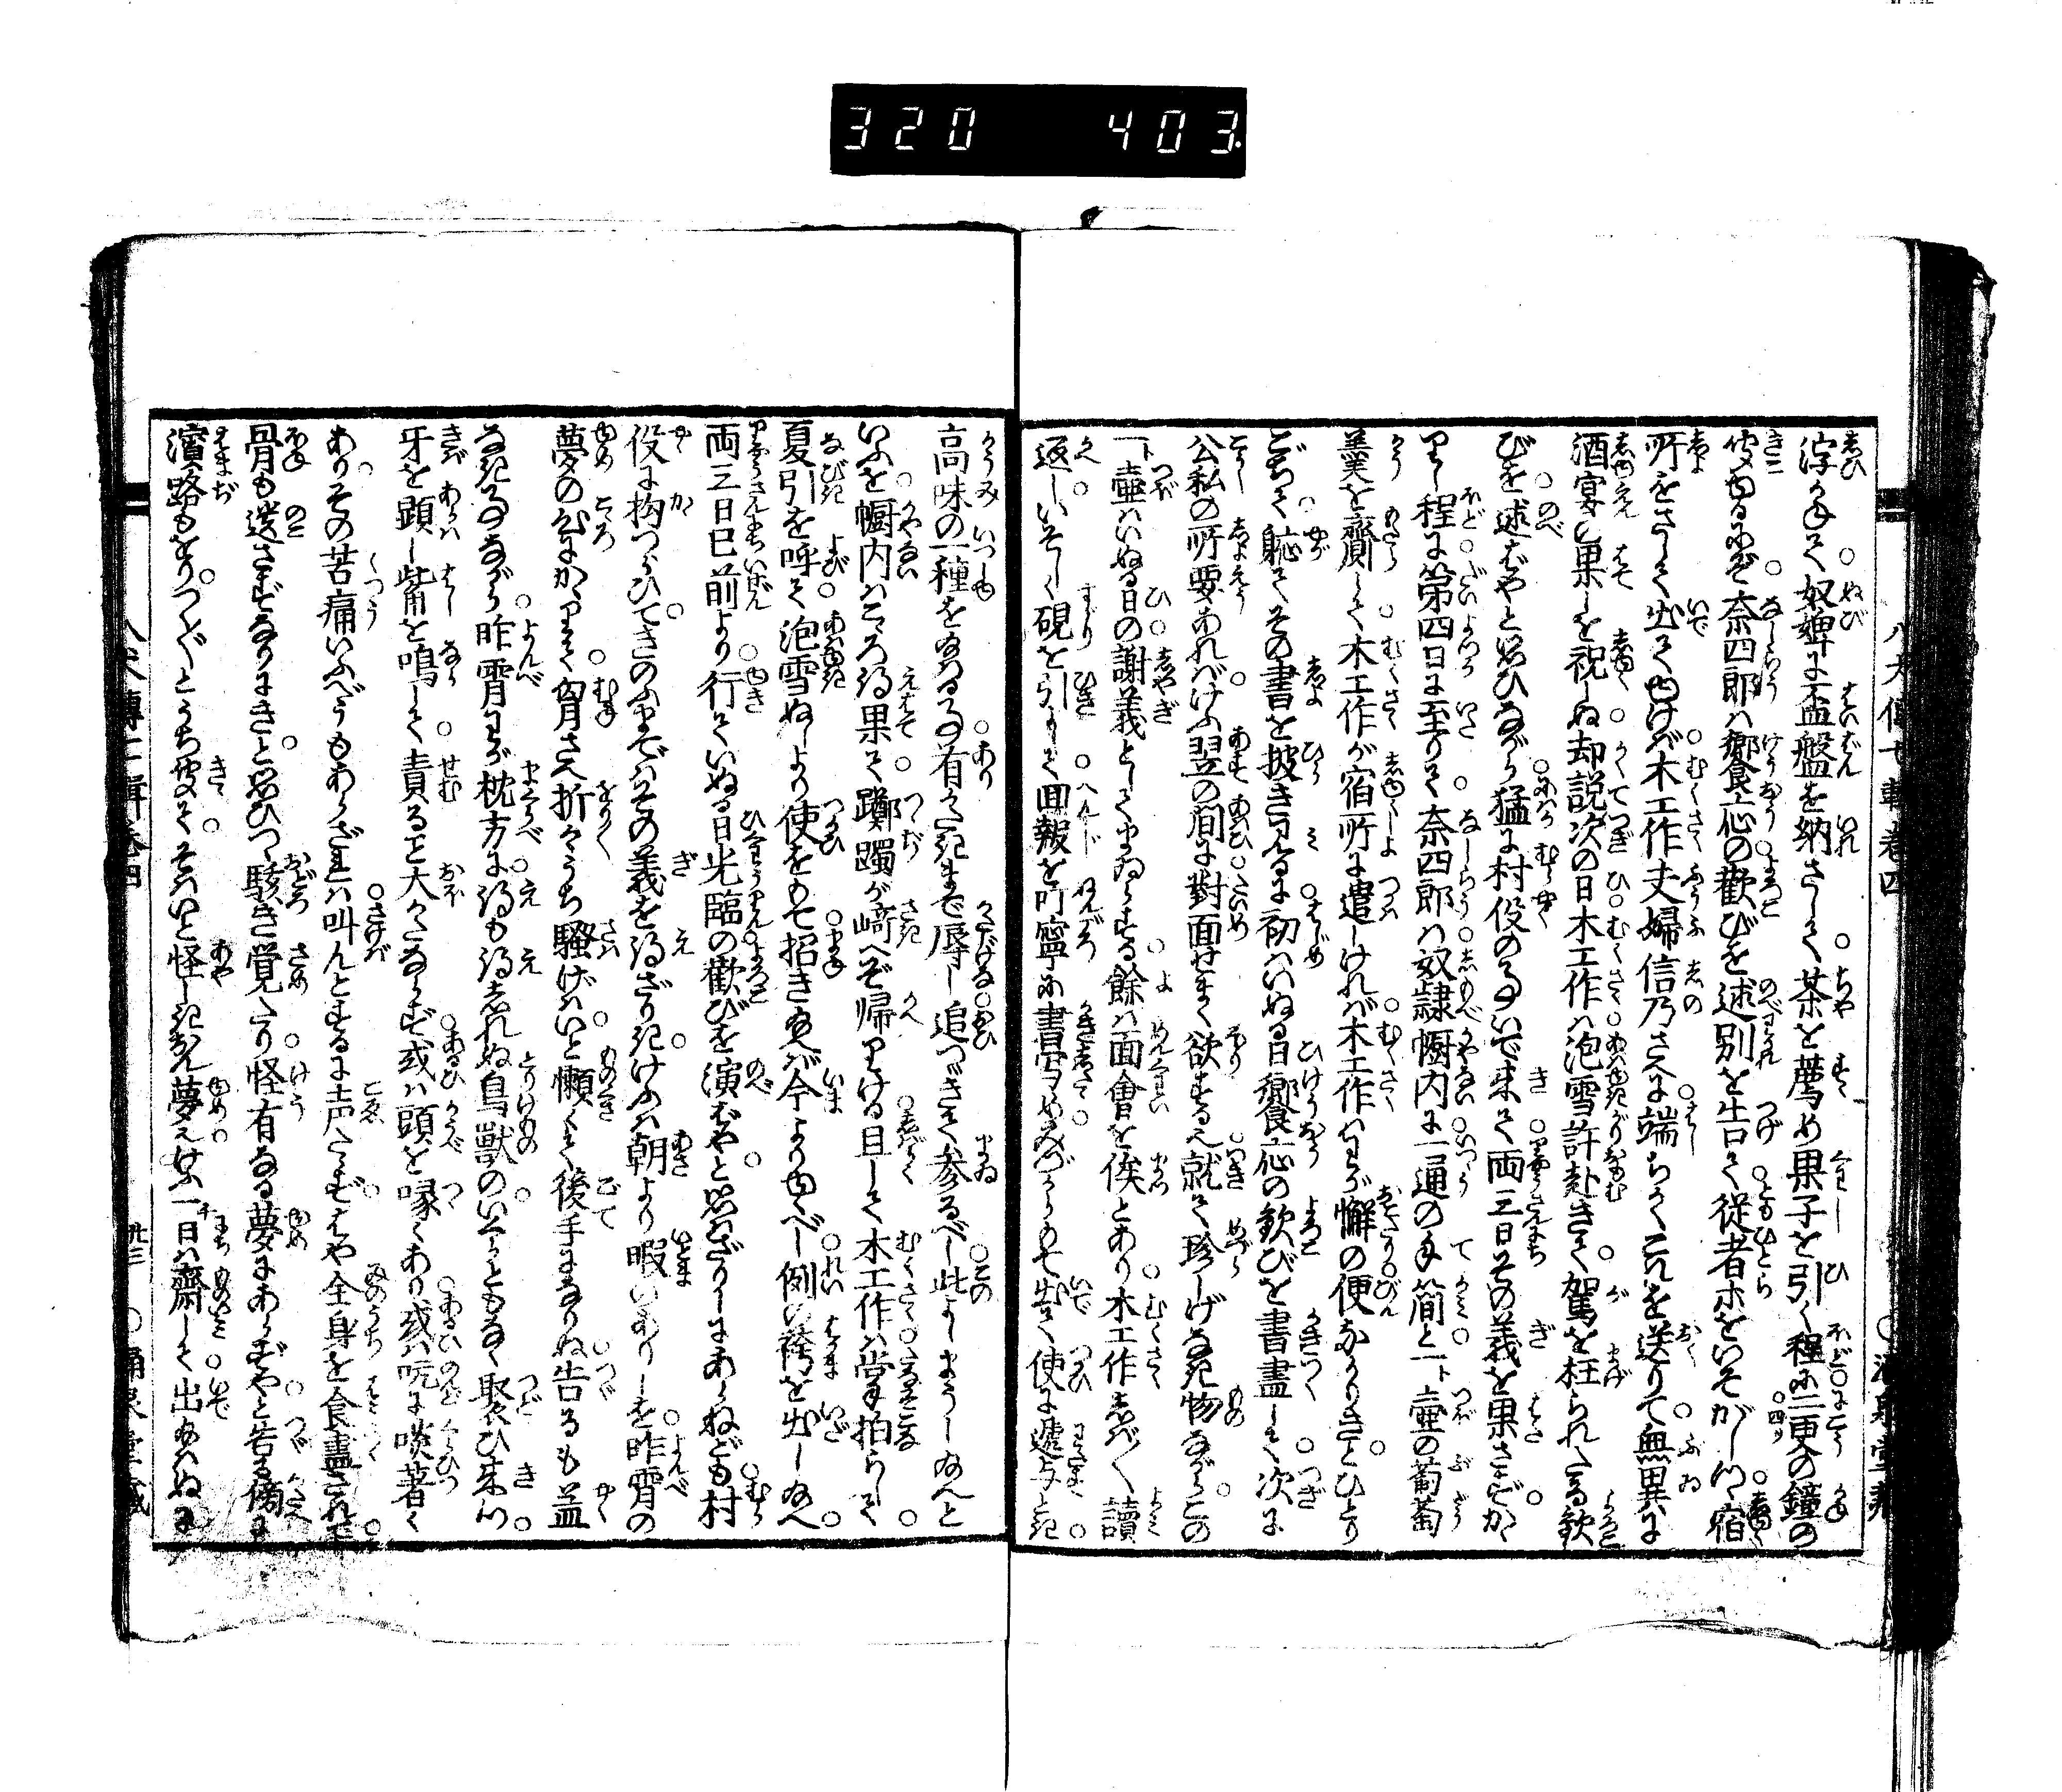 320 403
浮かねて奴婢に盃盤を納さして茶を薦め果子を引く程に二更の鐘の
るにぞ奈四郎は饗応の歓びを述別を告て従者ホをいそがしつゝ宿
所をさして出てゆけば木工作夫婦信乃さへに端ちかくこれを送りて無異に
酒宴に果しを祝しぬ却説次の日木工作は泡雪許赴きて駕を枉られたる歓
びを述ばやと思ひながら猛に村役の事いで来て両三日その義を果さずかゝ
りし程に第四日に至りて奈四郎は奴隷𢅥内に一通の手簡と一壷の葡萄
を齎して木工作が宿所に遣しければ木工作はわが懈の便なかりきとひとり
ごちて恥てその書を披き見るに初はいぬる日饗応の歓びを書尽して次に
公私の所要あればけふ翌の間に対面せまく欲する也就て珍しげなき物ながらこの
一壷はいぬる日の謝義としてまゐらする餘は面会を俟とあり木工作しば〳〵読
返しいそしく硯を引よして回報を叮寧に書写めみづからもて出て使に逓与すとき
高味の一種を給はる事有がたきまで辱し追つゞきて参るべし此よしまうし給へと
いふを𢅥内はこゝろ得果て躑躅が﨑へぞ帰りける且して木工作は掌を拍ならして
夏引を呼て泡雪ぬしより使をもて招き給へば今よりゆくべし例の袴を出し給へ
両三日已前より行ていぬる日光臨の歓びを演ばやと思はざりしにあらねども村
役に拘つらひてきのふまではその義を得ざりきけふは朝より暇いりありしを昨宵の
夢の心にかゝりて胸さへ折々うち騒げばいと懶くて後手になりぬ告るも益
なき事ながら昨宵わが枕方に得も得しれぬ鳥獣のいくらともなく聚ひ来つ
牙を顕し觜を鳴して責ること大かたならず或は頭を啄くあり或は吭に啖着く
ありその苦痛いふべうもあらざれば叫んとするに声たゝずはや全身を食尽されて
骨も遺さずなりにきと思ひつゝ駭き覚たり怪有なる夢にあらずやと告る傍に
濱路もをりつく〴〵とうち聴てそはいと怪しき夢也けふ一日は斎して出給はぬに